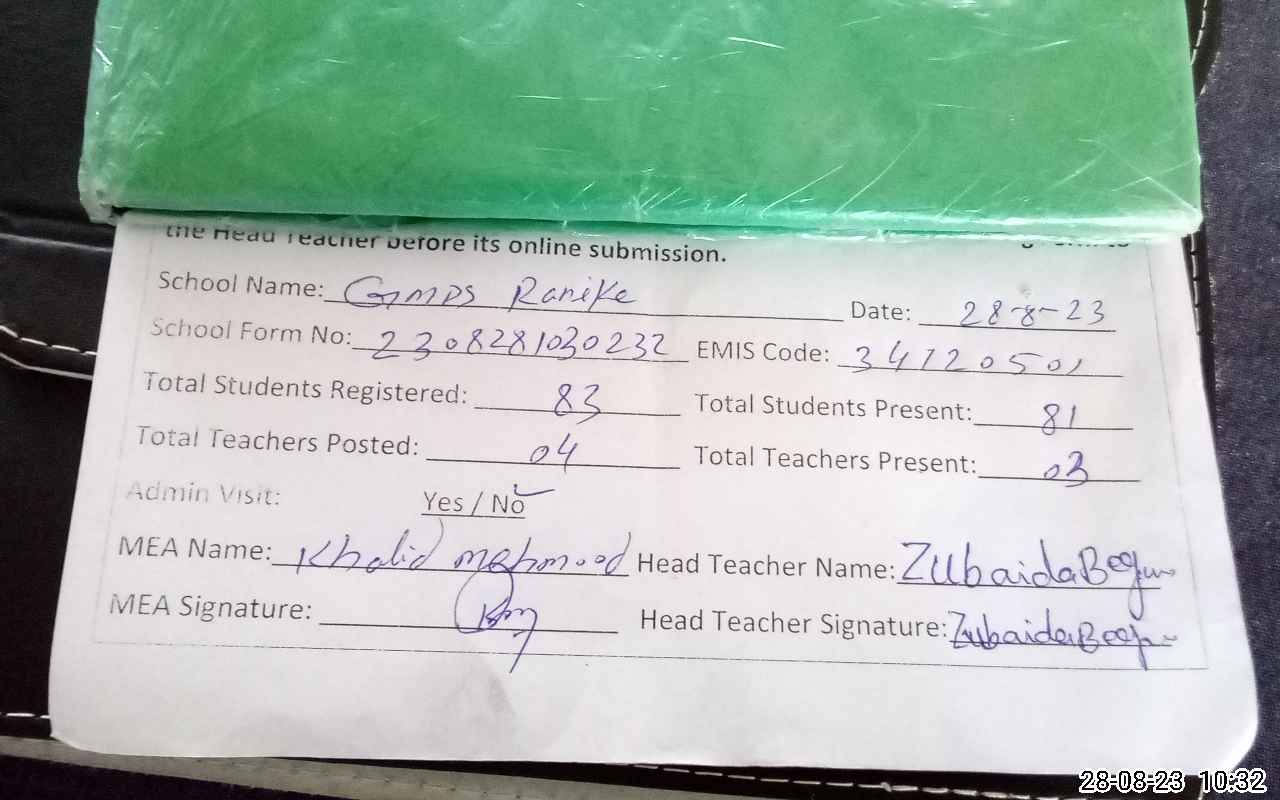 the Head Teacher before its online submission.
School Name: GMPS Ranike Date: 28-8-23
School Form No: 2308281030232 EMIS Code: 34120501
Total Students Registered: 83 Total Students Present: 81
Total Teachers Posted: 04 Total Teachers Present: 03
Admin Visit: Yes / No
MEA Name: Khalid mehmood Head Teacher Name: Zubaida Begum
MEA Signature: Head Teacher Signature: Zubaida Begum
28-08-23 10:32